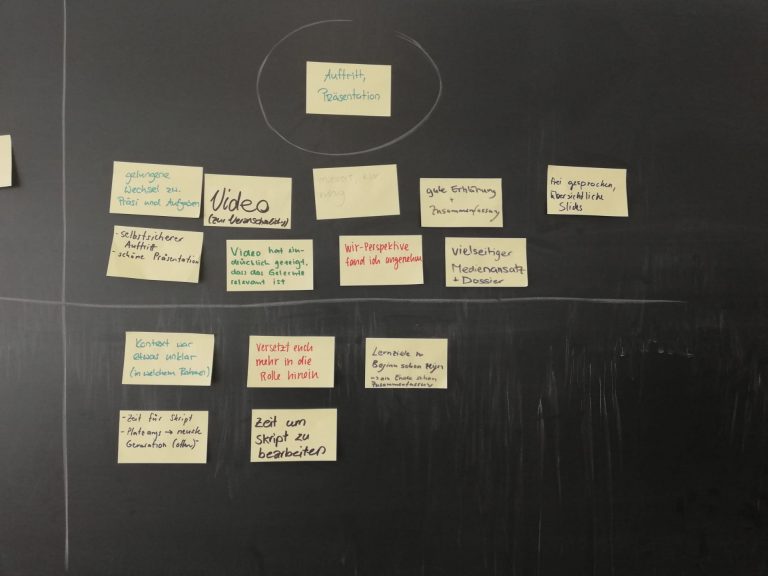 Auftritt,
Präsentation
gelungene
Wechsel zu
Präsi und Aufgaben
Video
(zur Veranschaulichg)
gute Erklärung
+
Zusammenfassung
frei gesprochen,
übersichtliche
Slides
- selbstsicherer
Auftritt
- schöne Präsentation
Video hat ein-
drücklich gezeigt,
dass das Gelernte
relevant ist
Wir-Perspektive
fand ich angenehm
vielseitiger
Medienansatz
+ Dossier
Kontext war
etwas unklar
(in welchem Rahmen)
Versetzt euch
mehr in die
Rolle hinein
Lernziele zu
Beginn schon
am Ende schon
Zusammenfassung
- Zeit für Skript
→
Generation (offen)
Zeit um
Skript zu
bearbeiten